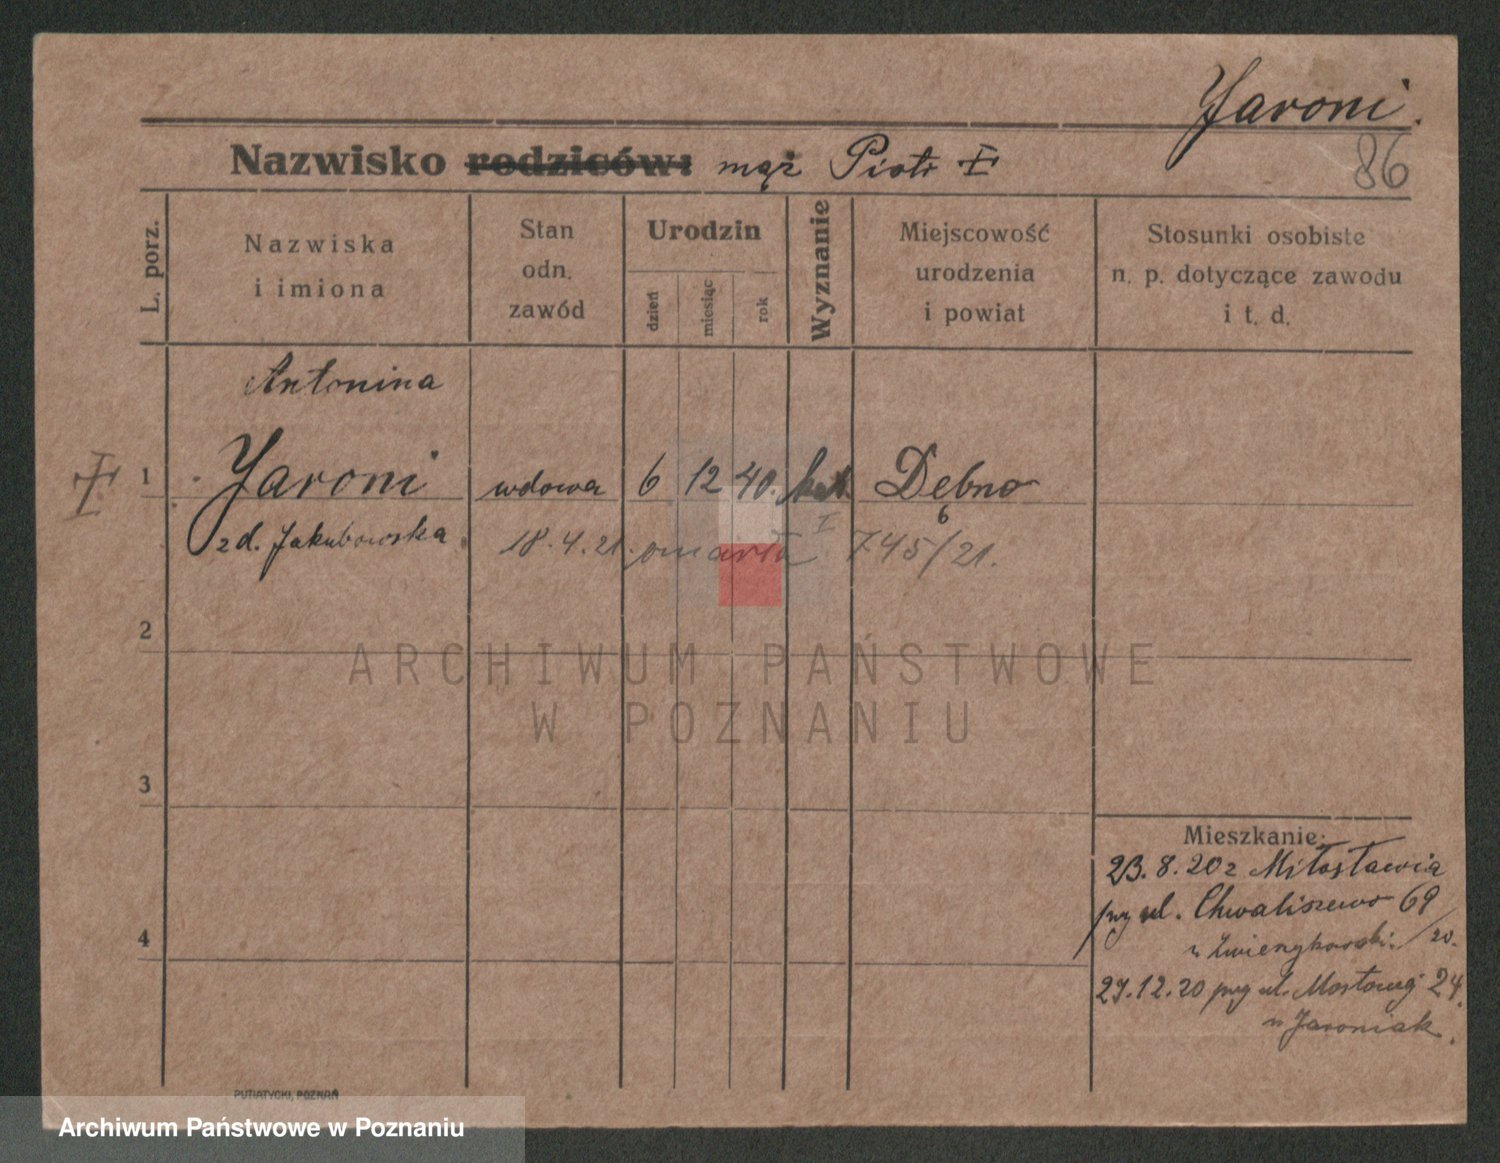 Jaroni.
86
Nazwisko rodziców: mąż Piotr
L. porz.
Nazwiska
i imiona
Stan
odn.
zawód
Urodzin
dzień
miesiąc
rok
Wyznanie
Miejscowość
urodzenia
i powiat
Stosunki osobiste
n. p. dotyczące zawodu
i t. d.
Antonina
1 Jaroni wdowa 6 12 40. kat. Dębno
z d. Jakubowska 18.4.21. umarła I 745/21.
2
3
4
Mieszkanie:
23.8.20 z Miłosławia
przy ul. Chwaliszewo 69
u /20.
29.12.20 przy ul. Mostowej 24.
u Jaroniak.
PUTIATYCKI, POZNAŃ
ARCHIWUM PAŃSTWOWE
W POZNANIU
Archiwum Państwowe w Poznaniu